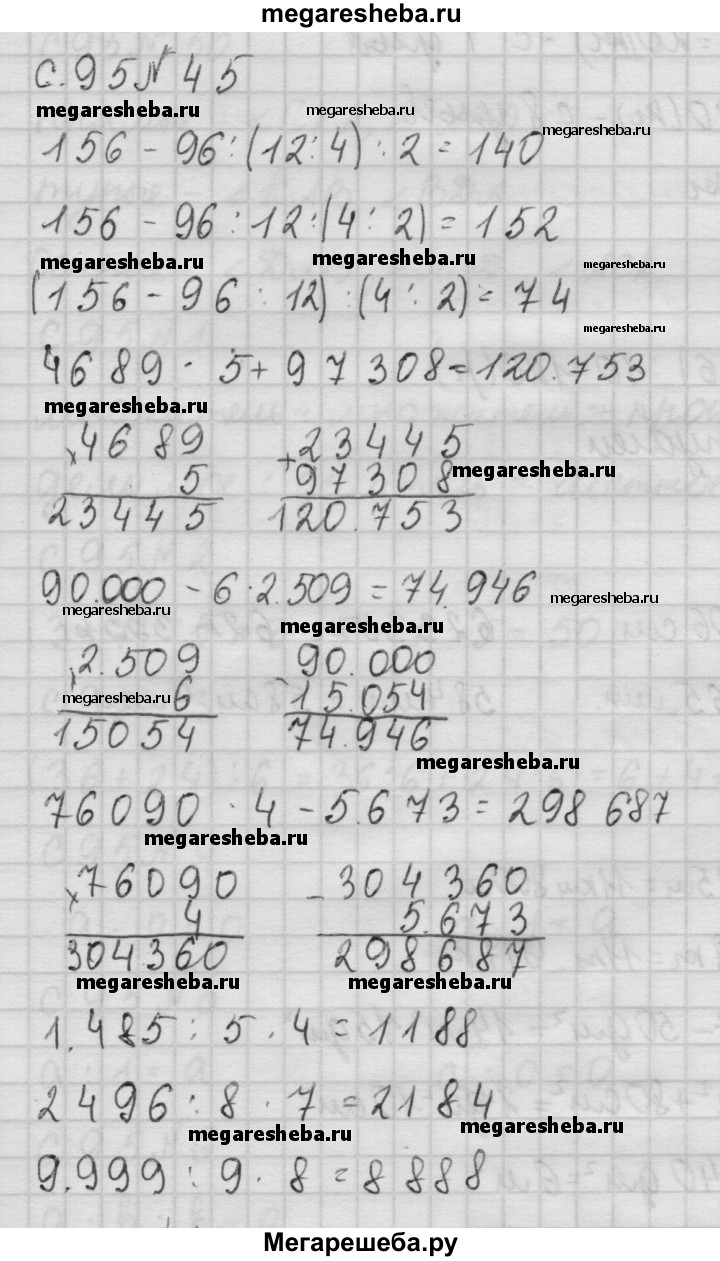 megaresheba.ru
с. 95 № 45
megaresheba.ru megaresheba.ru megaresheba.ru
156 - 96 : (12 : 4) : 2 = 140
156 - 96 : 12 : (4 : 2) = 152
megaresheba.ru megaresheba.ru megaresheba.ru
(156 - 96 : 12) : (4 : 2) = 74
megaresheba.ru
4689 · 5 + 97308 = 120.753
megaresheba.ru
×4689 +23445
5 97308 megaresheba.ru
23445 120.753
90.000 - 6 · 2.509 = 74.946
megaresheba.ru megaresheba.ru megaresheba.ru
2.509 90.000
megaresheba.ru 6 - 15.054
15054 74.946
megaresheba.ru
76090 · 4 - 5.673 = 298 687
megaresheba.ru
×76090 -304360
4 5.673
304360 298687
megaresheba.ru megaresheba.ru
1.485 : 5 · 4 = 1188
2496 : 8 · 7 = 2184
megaresheba.ru megaresheba.ru
9.999 : 9 · 8 = 8888
Мегарешеба.ру